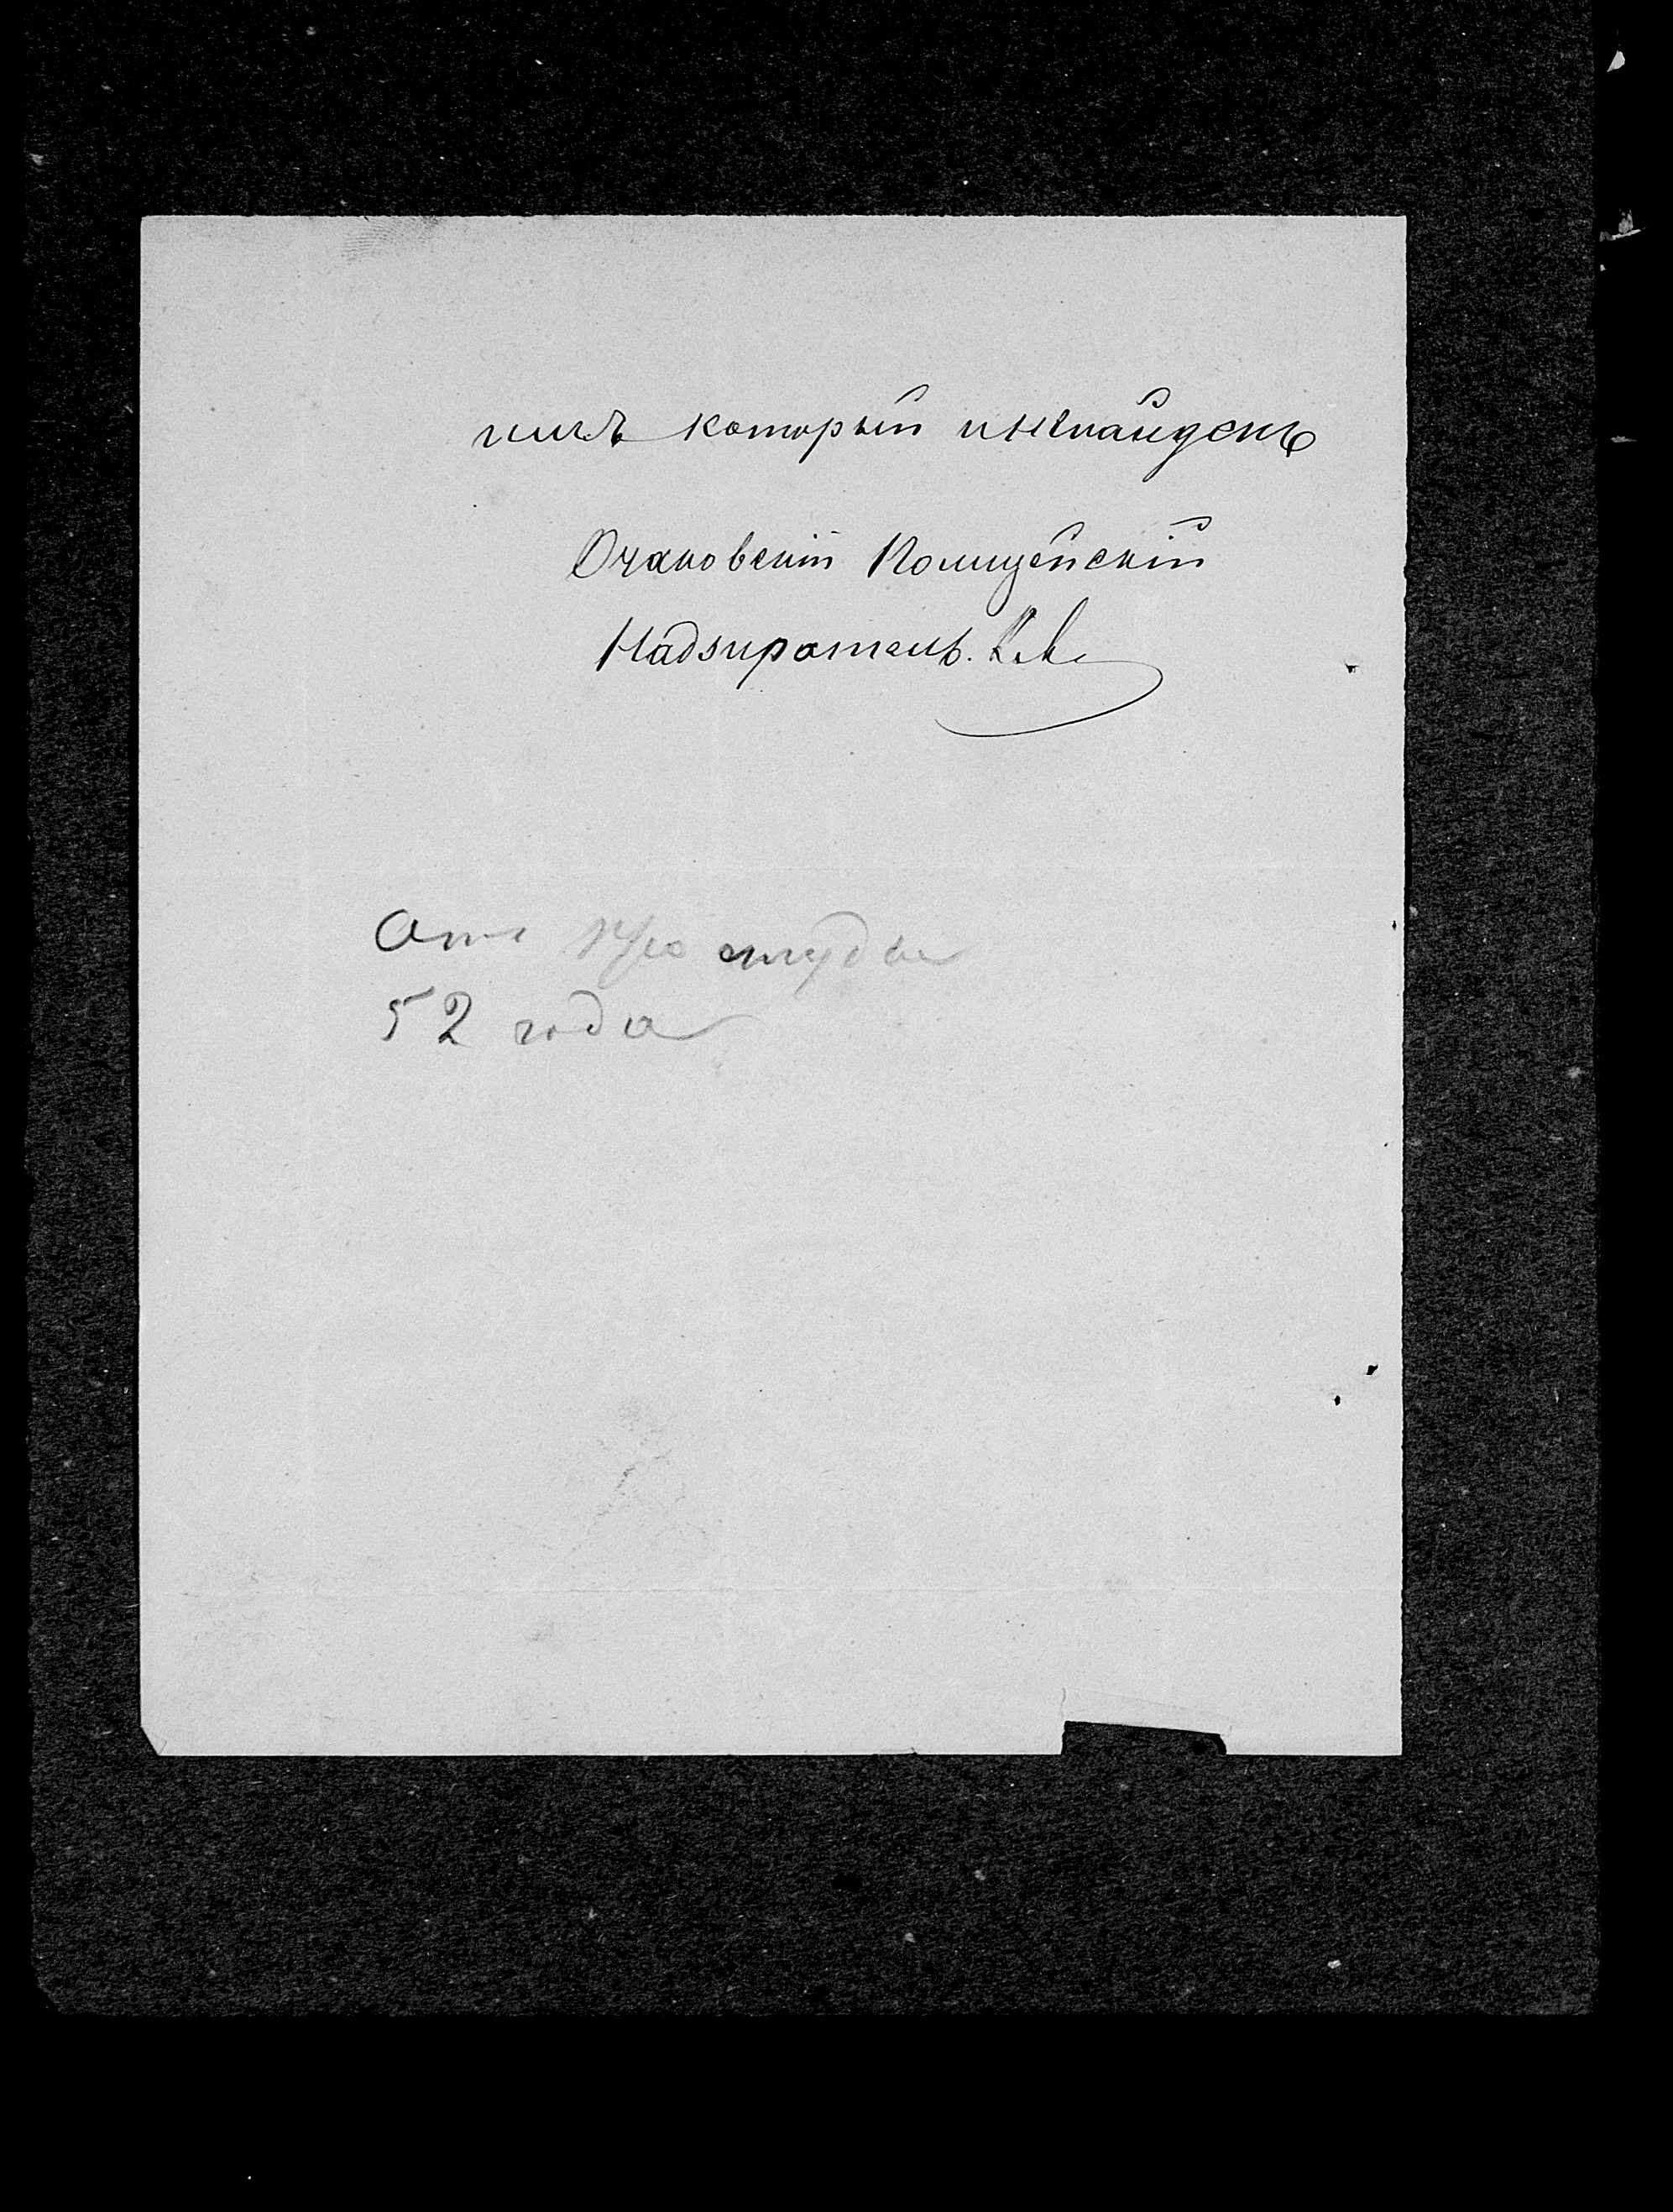 нихъ который и ненайденъ
Очаковскій Полицейскій
Надзиратель.
Отъ простуды
52 года